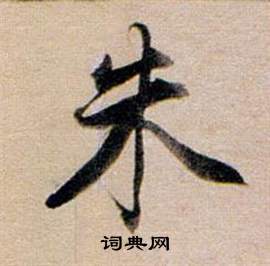 朱
词典网